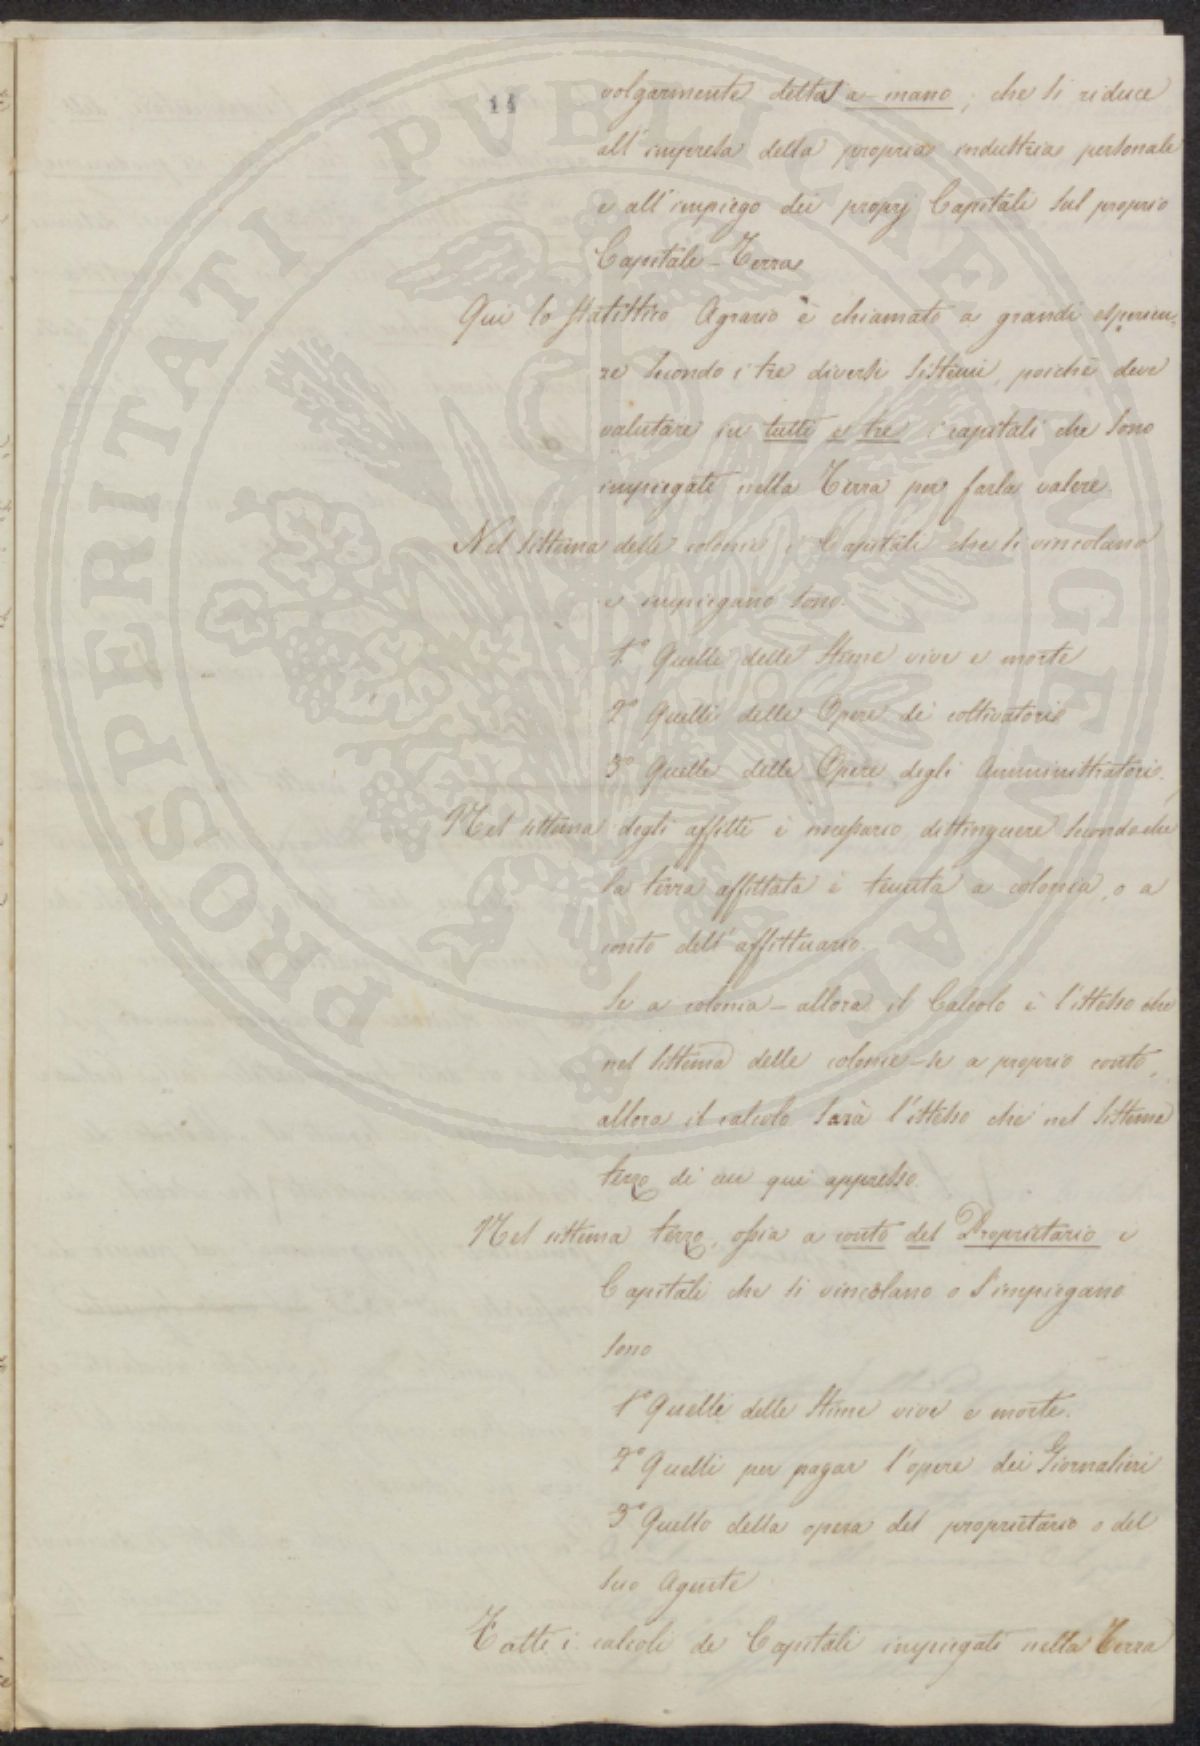 14
volgarmente detta a-mano, che si riduce
all'impresa della propria industria personale
e all'impiego dei proprj Capitali sul proprio
Capitale-Terra
Qui lo Statistico Agrario è chiamato a grandi esperien-
ze secondo i tre diversi sistemi, poichè deve
valutare in tutti e tre i capitali che sono
impiegati nella Terra per farla valere.
Nel sistema delle colonie i Capitali che si vincolano
e impiegano sono.
1° Quelli delle Stime vive e morte
2° Quelli delle Opere di coltivatori
3° Quelle delle Opere degli Amministratori.
Nel sistema degli affitti è necessario distinguere secondo che
la terra affittata è tenuta a colonia, o a
conto dell'affittuario.
Se a colonia - allora il Calcolo è l'istesso che
nel sistema delle colonie - se a proprio conto,
allora il calcolo sarà l'istesso che nel sistema
terzo di cui qui appresso.
Nel sistema terzo, ossia a conto del Proprietario i
Capitali che si vincolano o s'impiegano
sono
1° Quelli delle Stime vive e morte.
2° Quelli per pagar l'opere dei Giornalieri
3° Quello della opera del proprietario o del
suo Agente
Fatti i calcoli de Capitali impiegati nella Terra
PROSPERITATI PVBLICAE AVGENDAE